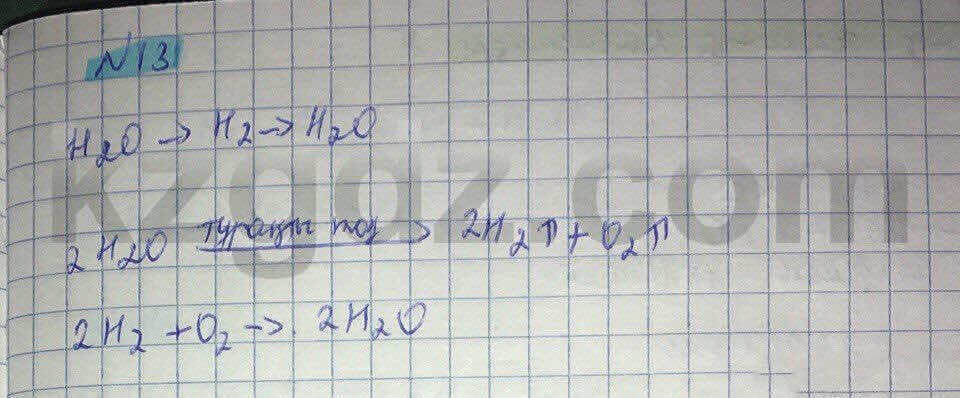 N13
H₂O → H₂ → H₂O
kzgdz.com
2H₂O тұрақты тоқ → 2H₂↑ + O₂↑
2H₂ + O₂ → 2H₂O